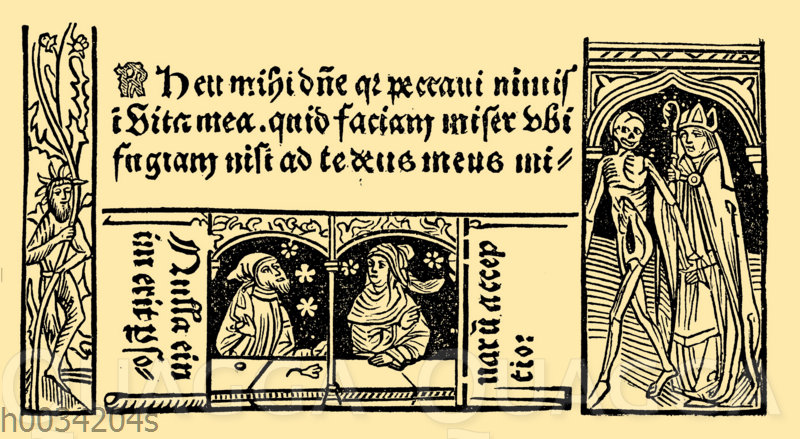 R Heu mihi dñe qr peccaui nimis
i Vita mea. quid faciam miser vbi
fugiam nisi ad te deus meus mi⸗
Nulla ein
im erit pso⸗
narū accep
tio:
QUAGGA QUAGGA
h0034204s